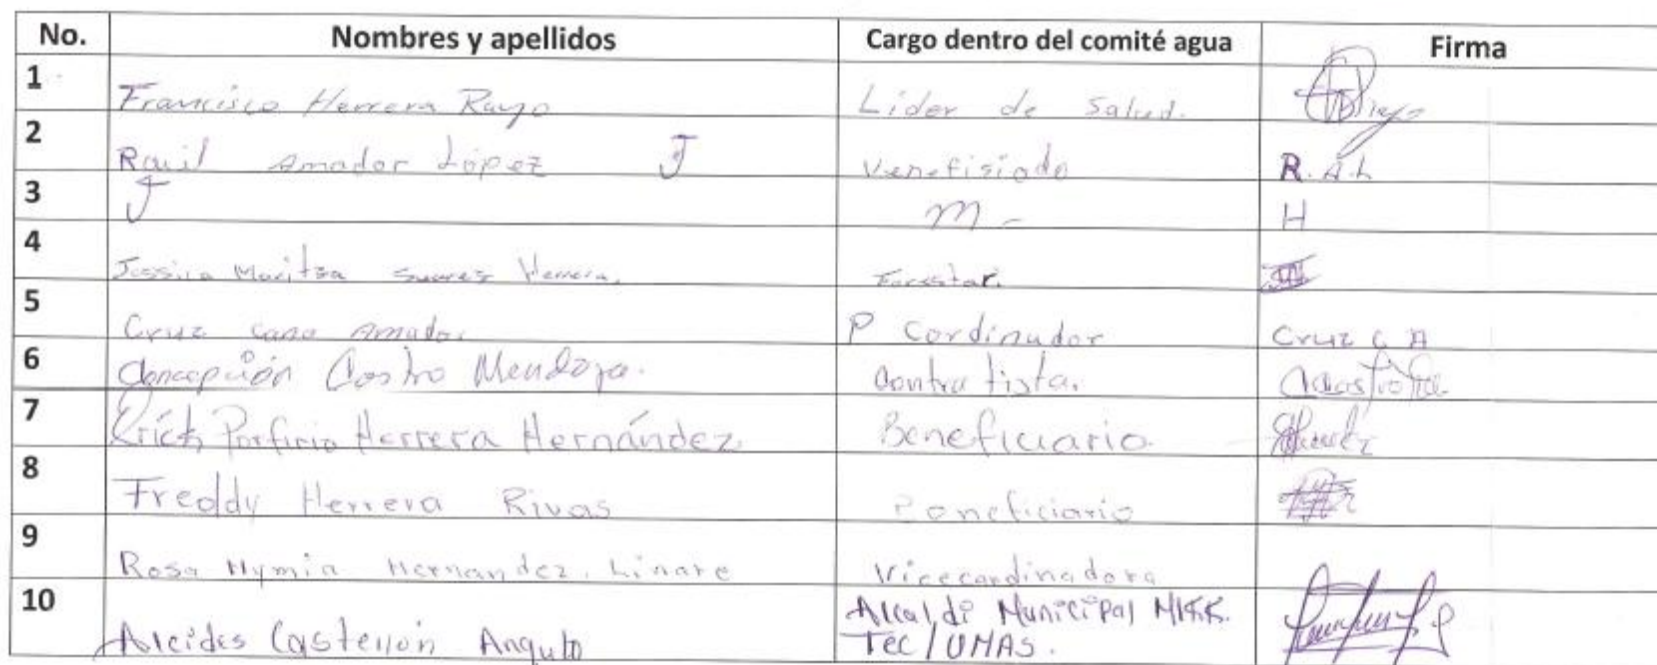 No. Nombres y apellidos Cargo dentro del comité agua Firma
1 Francisco Herrera Rayo Lider de salud.
2 Rauil Amador López J Venefisiado R.A.L
3 J m - H
4 Maritza Suarez Herrera. Forestar.
5 Cruz cano Amador P Cordinador Cruz C A
6 Concepción Castro Mendoza. Contratista.
7 Erick Porfirio Herrera Hernández Beneficiario
8 Freddy Herrera Rivas Beneficiario
9 Rosa Hymin Hernandez Linare Vicecordinadora
10 Alcides Castellón Angulo Alcaldi Municipal
Tec/UMAS.